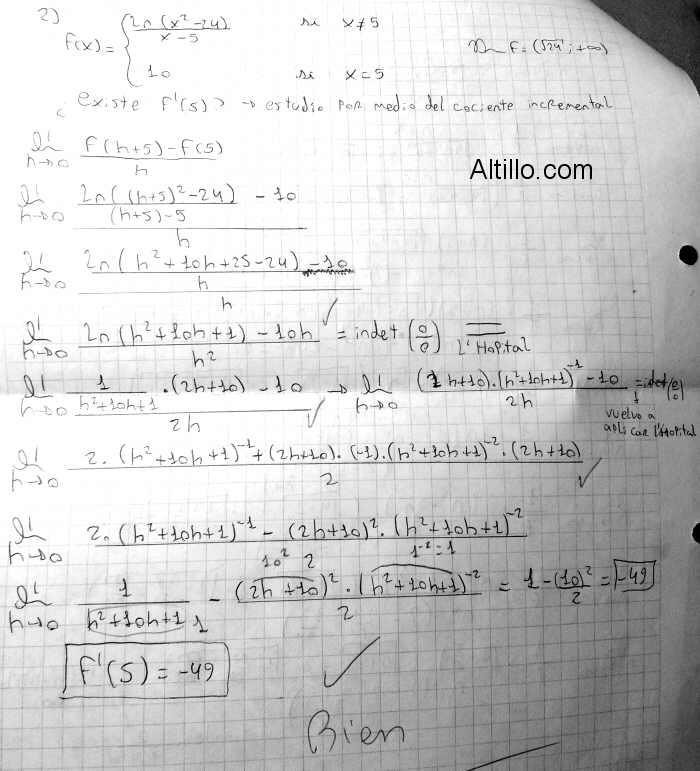 2)
f(x) = { ln(x²-24) / x-5 si x≠5
10 si x=5
Dom F = (√24 ; +∞)
¿existe f'(5)? → estudio por medio del cociente incremental
Altillo.com
lim h→0 f(h+5) - f(5) / h
lim h→0 ln((h+5)²-24) / (h+5)-5 - 10 / h
lim h→0 ln(h²+10h+25-24) - 10 / h / h
lim h→0 ln(h²+10h+1) - 10h / h² = indet (0/0) = L'Hopital
lim h→0 1 / h²+10h+1 . (2h+10) - 10 / 2h → lim h→0 (2h+10).(h²+10h+1)⁻¹ - 10 / 2h = indet (0/0)
vuelvo a
aplicar L'Hopital
lim h→0 2.(h²+10h+1)⁻¹ + (2h+10).(-1).(h²+10h+1)⁻².(2h+10) / 2
lim h→0 2.(h²+10h+1)⁻¹ - (2h+10)².(h²+10h+1)⁻² / 2
10² 1⁻²=1
lim h→0 1 / h²+10h+1 - (2h+10)².(h²+10h+1)⁻² / 2 = 1 - (10)² / 2 = -49
1
f'(5) = -49
Bien